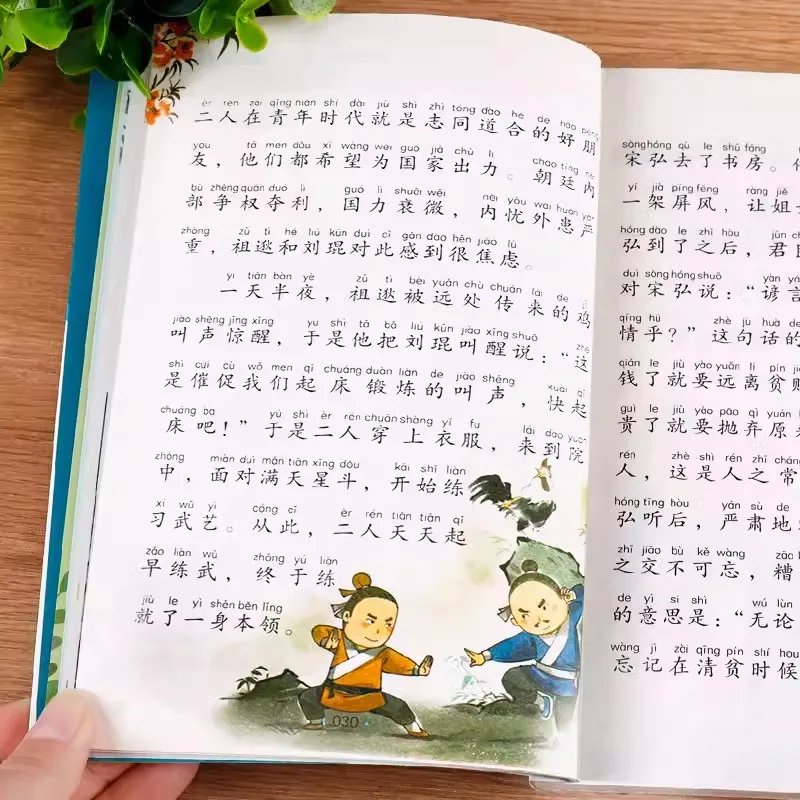 èr rén zài qīng nián shí dài jiù shì zhì tóng dào hé de hǎo péng
二人在青年时代就是志同道合的好朋
you tā men dōu xī wàng wèi guó jiā chū lì cháo tíng nèi
友，他们都希望为国家出力。朝廷内
bù zhēng quán duó lì guó lì shuāi wēi nèi yōu wài huàn yán
部争权夺利，国力衰微，内忧外患严
zhòng zǔ tì hé liú kūn duì cǐ gǎn dào hěn jiāo lǜ
重，祖逖和刘琨对此感到很焦虑。
yì tiān bàn yè zǔ tì bèi yuǎn chù chuán lái de jī
一天半夜，祖逖被远处传来的鸡
jiào shēng jīng xǐng yú shì tā bǎ liú kūn jiào xǐng shuō zhè
叫声惊醒，于是他把刘琨叫醒说：“这
shì cuī cù wǒ men qǐ chuáng duàn liàn de jiào shēng kuài qǐ
是催促我们起床锻炼的叫声，快起
chuáng ba yú shì èr rén chuān shàng yī fu lái dào yuàn
床吧！”于是二人穿上衣服，来到院
zhōng miàn duì mǎn tiān xīng dǒu kāi shǐ liàn
中，面对满天星斗，开始练
xí wǔ yì cóng cǐ èr rén tiān tiān qǐ
习武艺。从此，二人天天起
zǎo liàn wǔ zhōng yú liàn
早练武，终于练
jiù le yì shēn běn lǐng
就了一身本领。
030
sòng hóng qù le shū fáng
宋弘去了书房。
yí jià píng fēng ràng jiě
一架屏风，让姐
hóng dào le zhī hòu jūn
弘到了之后，君
duì sòng hóng shuō yàn yá
对宋弘说：“谚言
qíng hū zhè jù huà de
情乎？”这句话的
qián le jiù yào yuǎn lí pín
钱了就要远离贫
guì le jiù yào pāo qì yuán
贵了就要抛弃原
rén zhè shì rén zhī cháng
人，这是人之常
hóng tīng hòu yán sù de
弘听后，严肃地
zhī jiāo bù kě wàng zāo
之交不可忘，糟
de yì si shì wú lùn
的意思是：“无论
wàng jì zài qīng pín shí hou
忘记在清贫时候